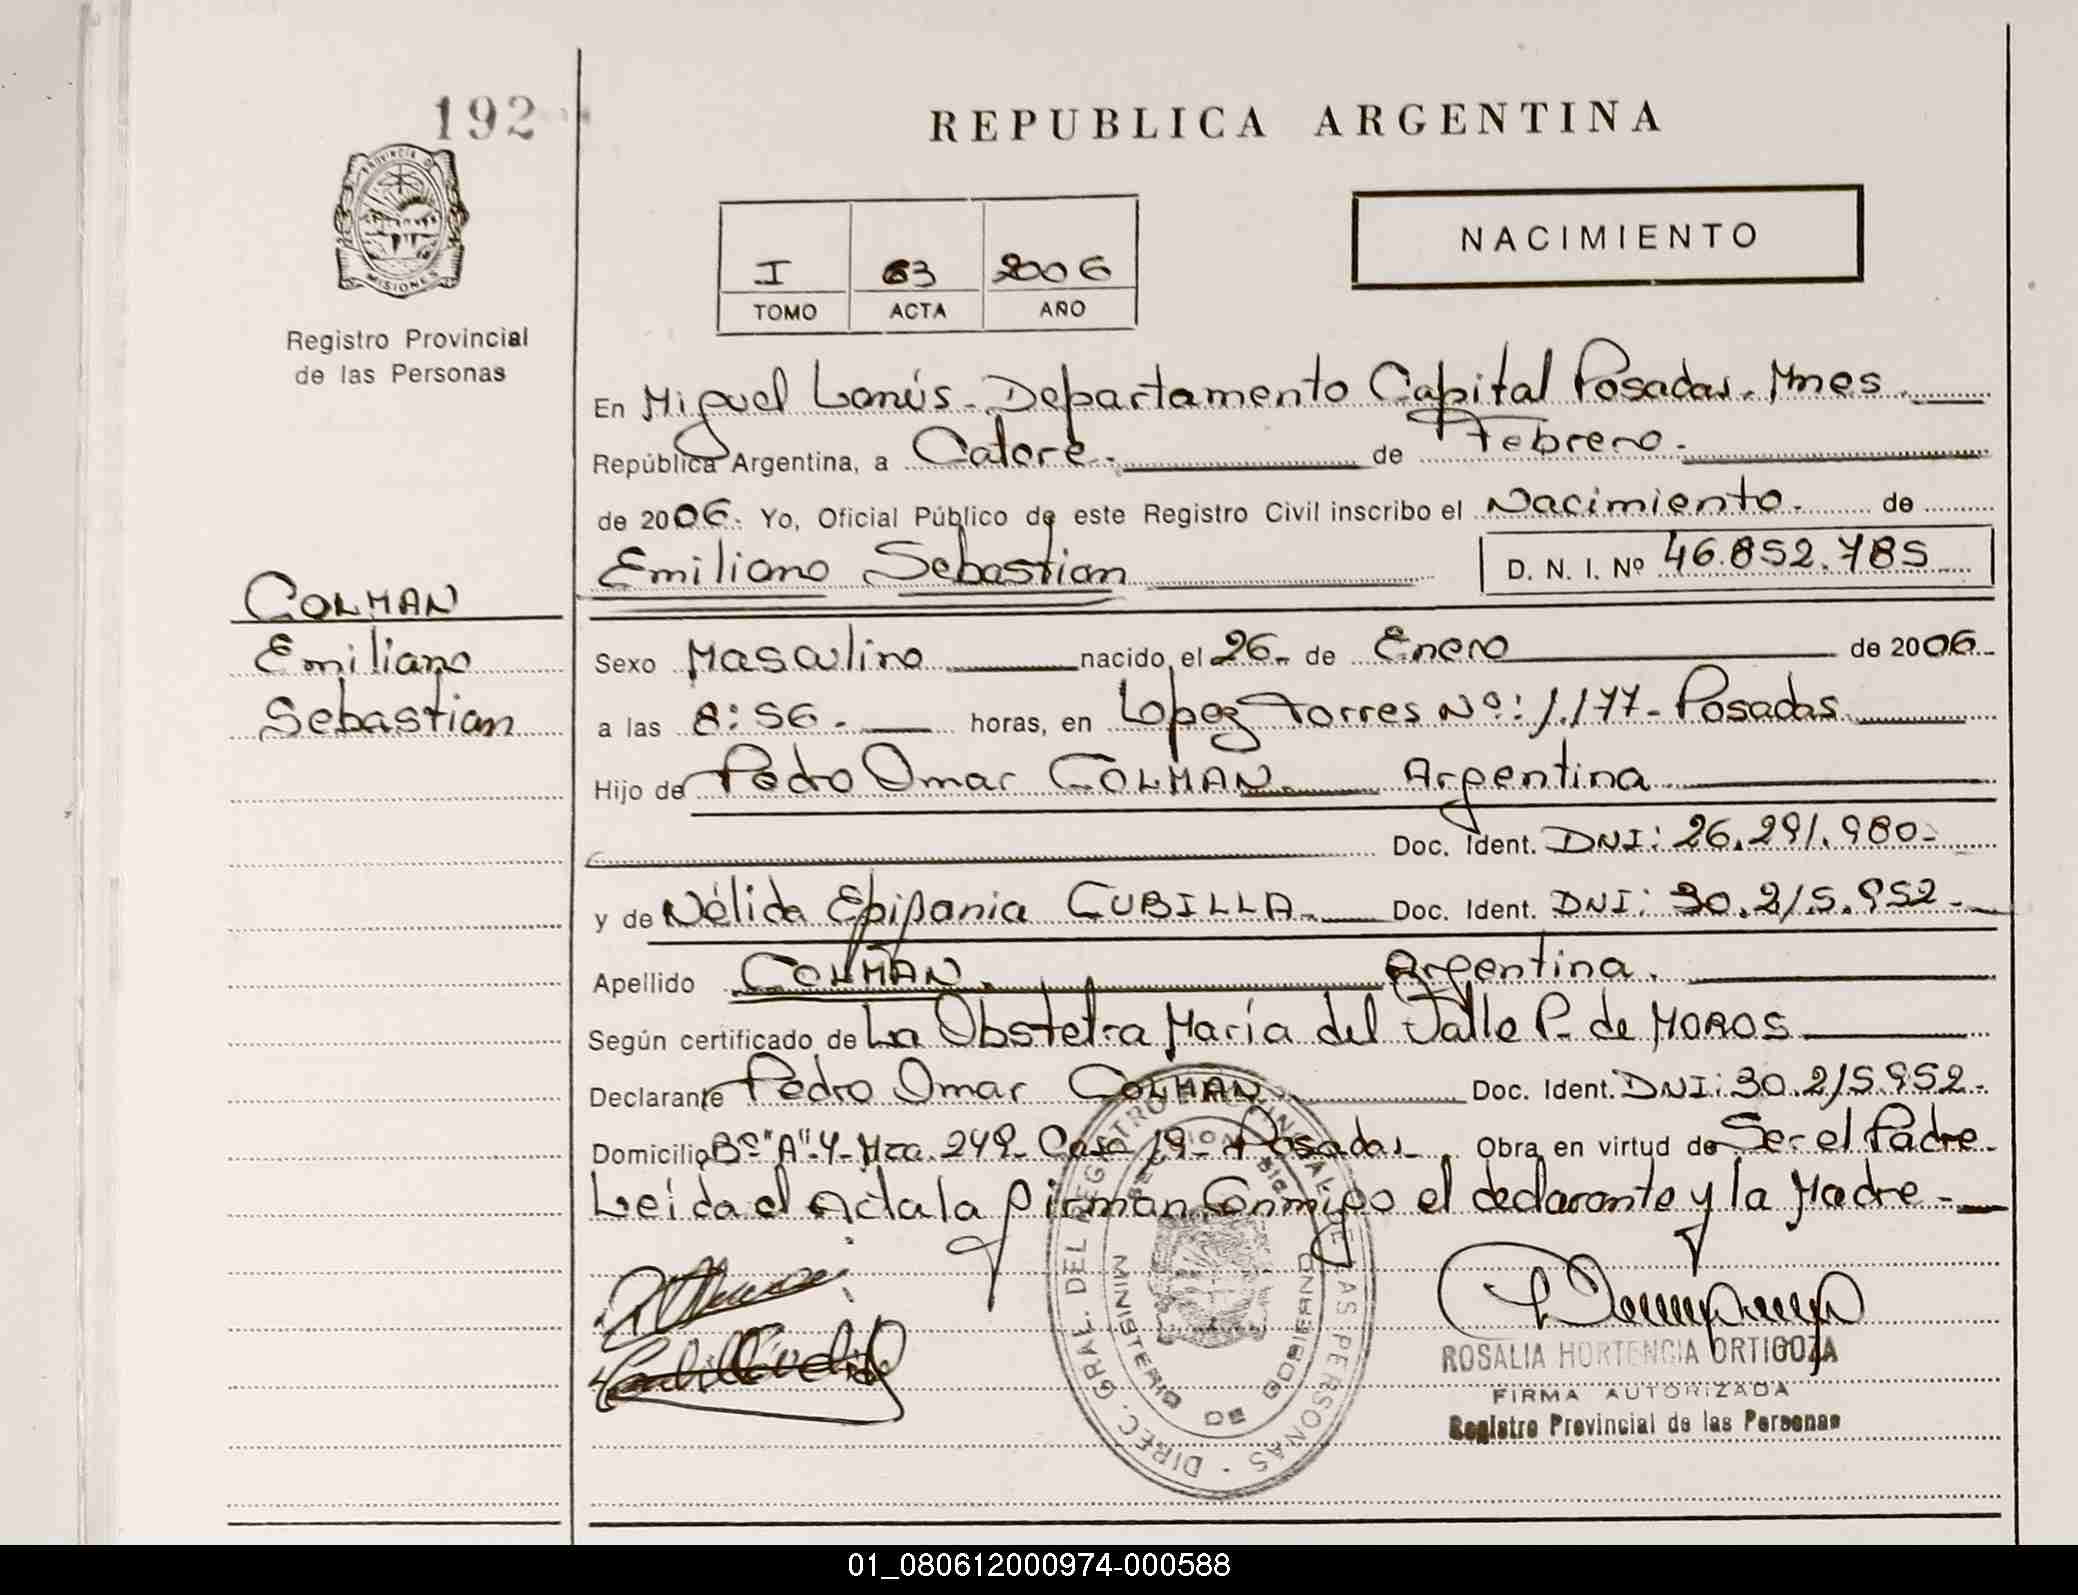 192
REPUBLICA ARGENTINA
PROVINCIA DE
MISIONES
Registro Provincial
de las Personas
NACIMIENTO
I 63 2006
TOMO ACTA AÑO
En Miguel Lanús - Departamento Capital Posadas. Mnes
República Argentina, a Catorce. de Febrero.
de 2006. Yo, Oficial Público de este Registro Civil inscribo el Nacimiento. de
Emiliano Sebastian D. N. I. Nº 46.852.785
COLMAN
Emiliano
Sebastian
Sexo Masculino nacido el 26 de Enero de 2006
a las 8:56 horas, en Lopez Torres Nº: 1.177 - Posadas
Hijo de Pedro Omar COLMAN Argentina
Doc. Ident. DNI: 26.291.980-
y de Nélida Epifania CUBILLA Doc. Ident. DNI: 30.215.952-
Apellido COLMAN. Argentina.
Según certificado de La Obstetra María del Valle P. de MOROS
Declarante Pedro Omar COLMAN Doc. Ident. DNI: 30.215.952-
Domicilio Bº "A"-4- Mza. 249- Casa 19- Posadas Obra en virtud de Ser el Padre-
Leída el Acta la firman Conmigo el declarante y la Madre-
DIREC. GRAL. DEL REGISTRO PROVINCIAL DE LAS PERSONAS
MINISTERIO DE GOBIERNO
ROSALIA HORTENCIA ORTIGOZA
FIRMA AUTORIZADA
Registro Provincial de las Personas
01_080612000974-000588